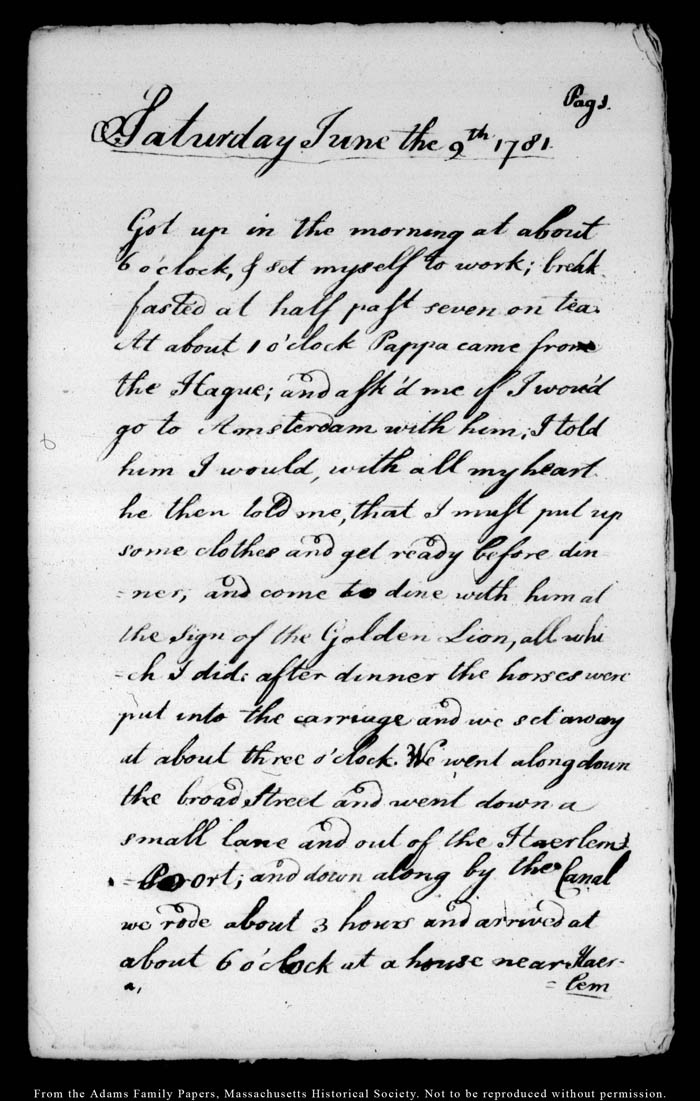 Page 1.
Saturday June the 9th 1781.
Got up in the morning at about
6 o'clock, & set myself to work; break
fasted at half past seven on tea.
At about 1 o'clock Pappa came from
the Hague; and ask'd me if I wou'd
go to Amsterdam with him; I told
him I would, with all my heart
he then told me, that I must put up
some clothes and get ready before din=
=ner, and come to dine with him at
the sign of the Golden Lion, all whi
=ch I did: after dinner the horses were
put into the carriage and we set away
at about three o'clock. We went along down
the broad Street and went down a
small lane and out of the Haerlem
=Poort; and down along by the Canal
we rode about 3 hours and arrived at
about 6 o'clock at a house near Haer-
=lem
a,
From the Adams Family Papers, Massachusetts Historical Society. Not to be reproduced without permission.